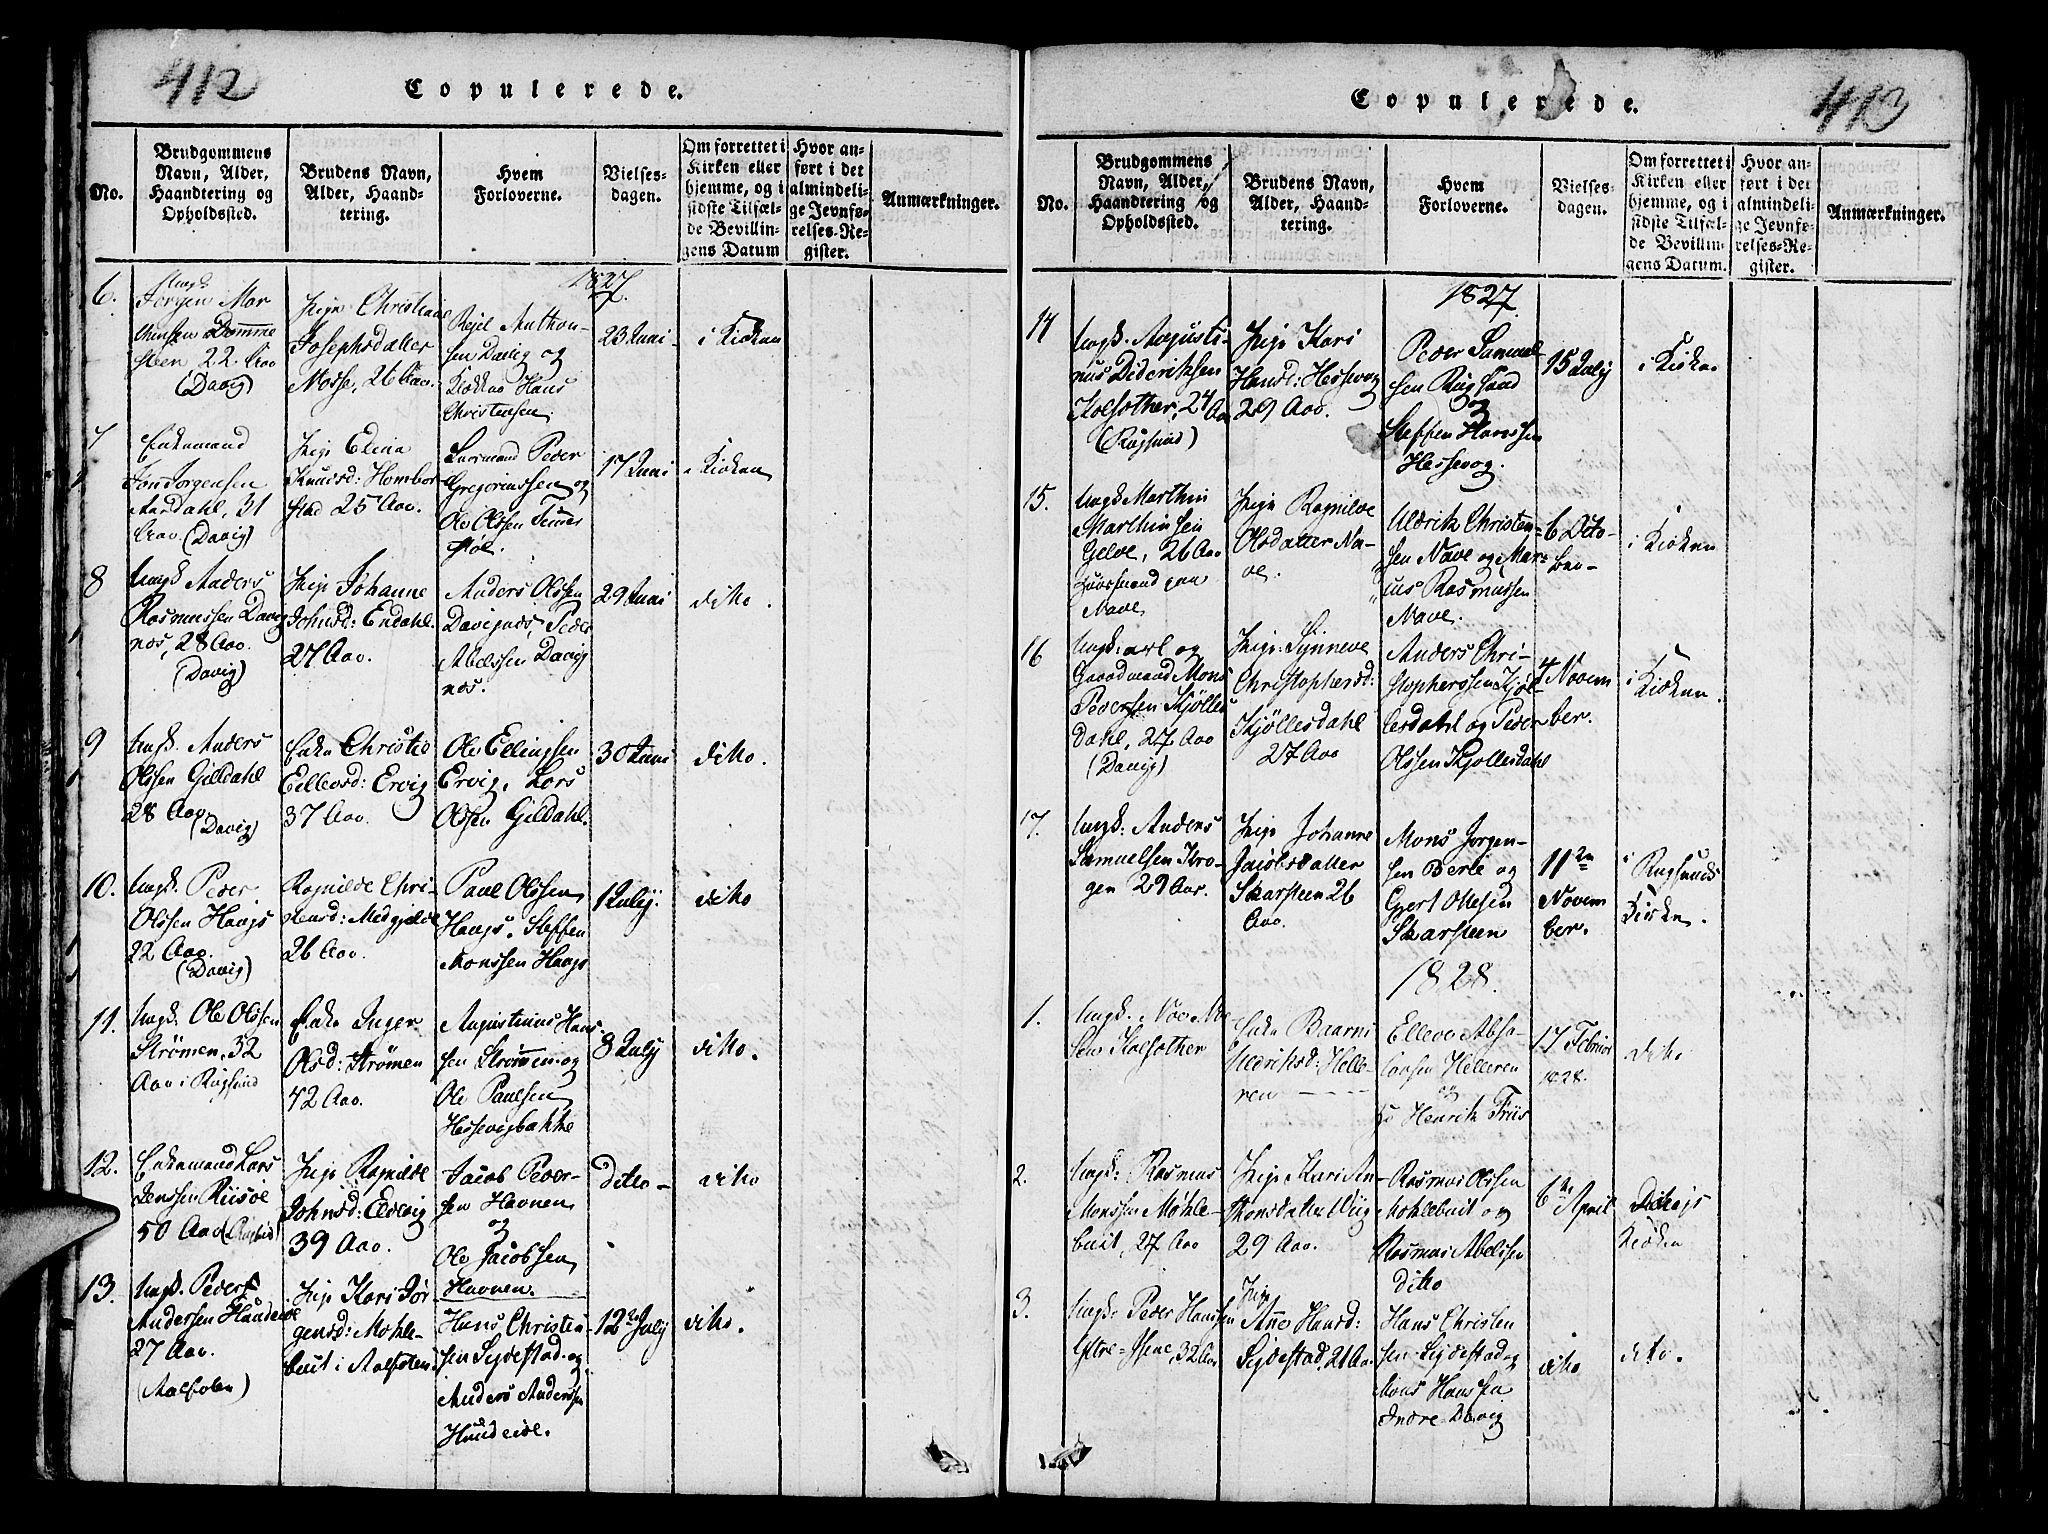 412
Copulerede.
No.
Brudgommens
Navn, Alder,
Haandtering og
Opholdssted.
Brudens Navn,
Alder, Haand-
tering.
Hvem
Forloverne.
Vielses-
dagen.
Om forrettet i
Kirken eller
hjemme, og i
sidste Tilfæl-
de Bevillin-
gens Datum
Hvor an-
ført i det
almindeli-
ge Jevnfø-
relses-Re-
gister.
Anmærkninger.
1827.
6.
Ungk
Jørgen Mor
steen 22. Aar
(Davig)
Pige Christiane
Josephsdatter
Mosse, 26 Aar.
Anthon-
sen Davig og
Hans
Christensen.
23 Juni
i Kirken
7
Enkemand
Jon Jorgensen
Aardahl, 31
Aar. (Davig)
Pige Elina
Knudsd: Hombor
stad 25 Aar.
Peder
Gregoriussen og
Ole Olssen
17 Juni
i Kirken
8
Ungk Anders
Rasmussen Davig
nes, 28 Aar.
(Davig)
Pige Johanne
Johnsd: Endahl.
27 Aar.
Anders Olssen
Davignes, Peder
Abelssen Davig
nes.
29 Juni
ditto.
9
Ungk. Anders
Olssen Gilldahl
28 Aar.
(Davig)
Enke Christie
Ellevsd: Ervig
37 Aar.
Ole Ellingsen
Ervig. Lars
Olssen Gjeldahl.
30 Juni
ditto.
10.
Ungk. Peder
Olssen Haugs
22 Aar.
(Davig)
Ragnilde Chri-
stensd: Medgjelde
26 Aar.
Paul Olssen
Haugs. Steffen
Monssen Haugs
1 July.
ditto
11.
Ungk. Ole Olssen
Strømen, 32
Aar i Rugsund
Enke Inger
Olsd: Strømen
42 Aar.
Augustinus Hans
sen Strømen og
Ole Paulsen
Hessevigbakke
8 July
ditto.
12.
Enkemand Lars
Jenssen Riisøe
50 Aar
Pige Ragnilde
Johnsd: Eldevig
39 Aar.
Jacob Peder-
sen Havnen
og
Ole Jacobsen
Havnen.
Ditto
ditto
13.
Ungk. Peder
Andersen Hundeide
27 Aar.
(Aalfoten)
Pige Kari Jør
gensd: Mohle-
buit i Aalfoten
Hans Christen-
sen Sejdestad og
Anders Andersen
Hundeide.
12te July
ditto.
413
Copulerede.
No.
Brudgommens
Navn, Alder,
Haandtering og
Opholdssted.
Brudens Navn,
Alder, Haand-
tering.
Hvem
Forloverne.
Vielses-
dagen.
Om forrettet i
Kirken eller
hjemme, og i
sidste Tilfæl-
de Bevillin-
gens Datum.
Hvor an-
ført i det
almindeli-
ge Jevnfø-
relses-Re-
gister.
Anmærkninger.
1827.
14
Ungk. Augusti-
nus Dideriksen
Kolsether, 24 Aar
(Rugsund)
Pige Kari
Hansd: Hessevog
29 Aar.
Peder Samuel-
sen Rugsund
og
Steffen Hanssen
Hessevog.
15 July
i Kirken
15.
Ungk Marthin
Marthinsen
Gelve, 26 Aar
Nave
Pige Ragnilde
Olsdatter Na-
ve.
Uldrik Christen-
sen Nave og Mar-
cus Rasmussen
Nave.
6 Octo-
ber
i Kirken
16
Ungkarl og
Gaardmand Mons
Pedersen Kjølles
Dahl, 27 Aar
(Davig)
Pige: Synneve
Christophersd:
Kjøllesdahl
27 Aar
Anders Chri-
stopherssen Kjøl-
lesdahl og Peder
Olssen Kjøllesdahl
4 Novem
ber.
i Kirken.
17.
Ungk: Anders
Samuelsen Kro-
gen 29 Aar.
Pige Johanne
Jacobsdatter
Skarsteen 26
Aar.
Mons Jorgen-
sen Berle og
Gjert Ottesen
Skarsteen
11te
Novem
ber.
i Rugsunds
Kirken.
1828.
1.
Ungk. Noe
Kolsether
Enke Baarni
Hedriksd: Helle-
ren
Ellev Absa-
lonsen Helleren
og
Henrik Friis
17 Februar
1828.
ditto
2.
Ungk: Rasmus
Monssen Møhle-
buit, 27 Aar
Pige Kari An-
thonsdatter Viig
29 Aar.
Rasmus Olssen
Mohlebuit og
Rasmus Abelssen
ditto
6te April
Davigs
Kirken
3.
Ungk: Peder Hanssen
Yttre-Hjene, 32 Aar
Pige
Anne Hansd:
Sejdestad, 21 Aar
Hans Christen
sen Sejdestad og
Mons Hanssen
Indre-Davig
ditto
ditto.